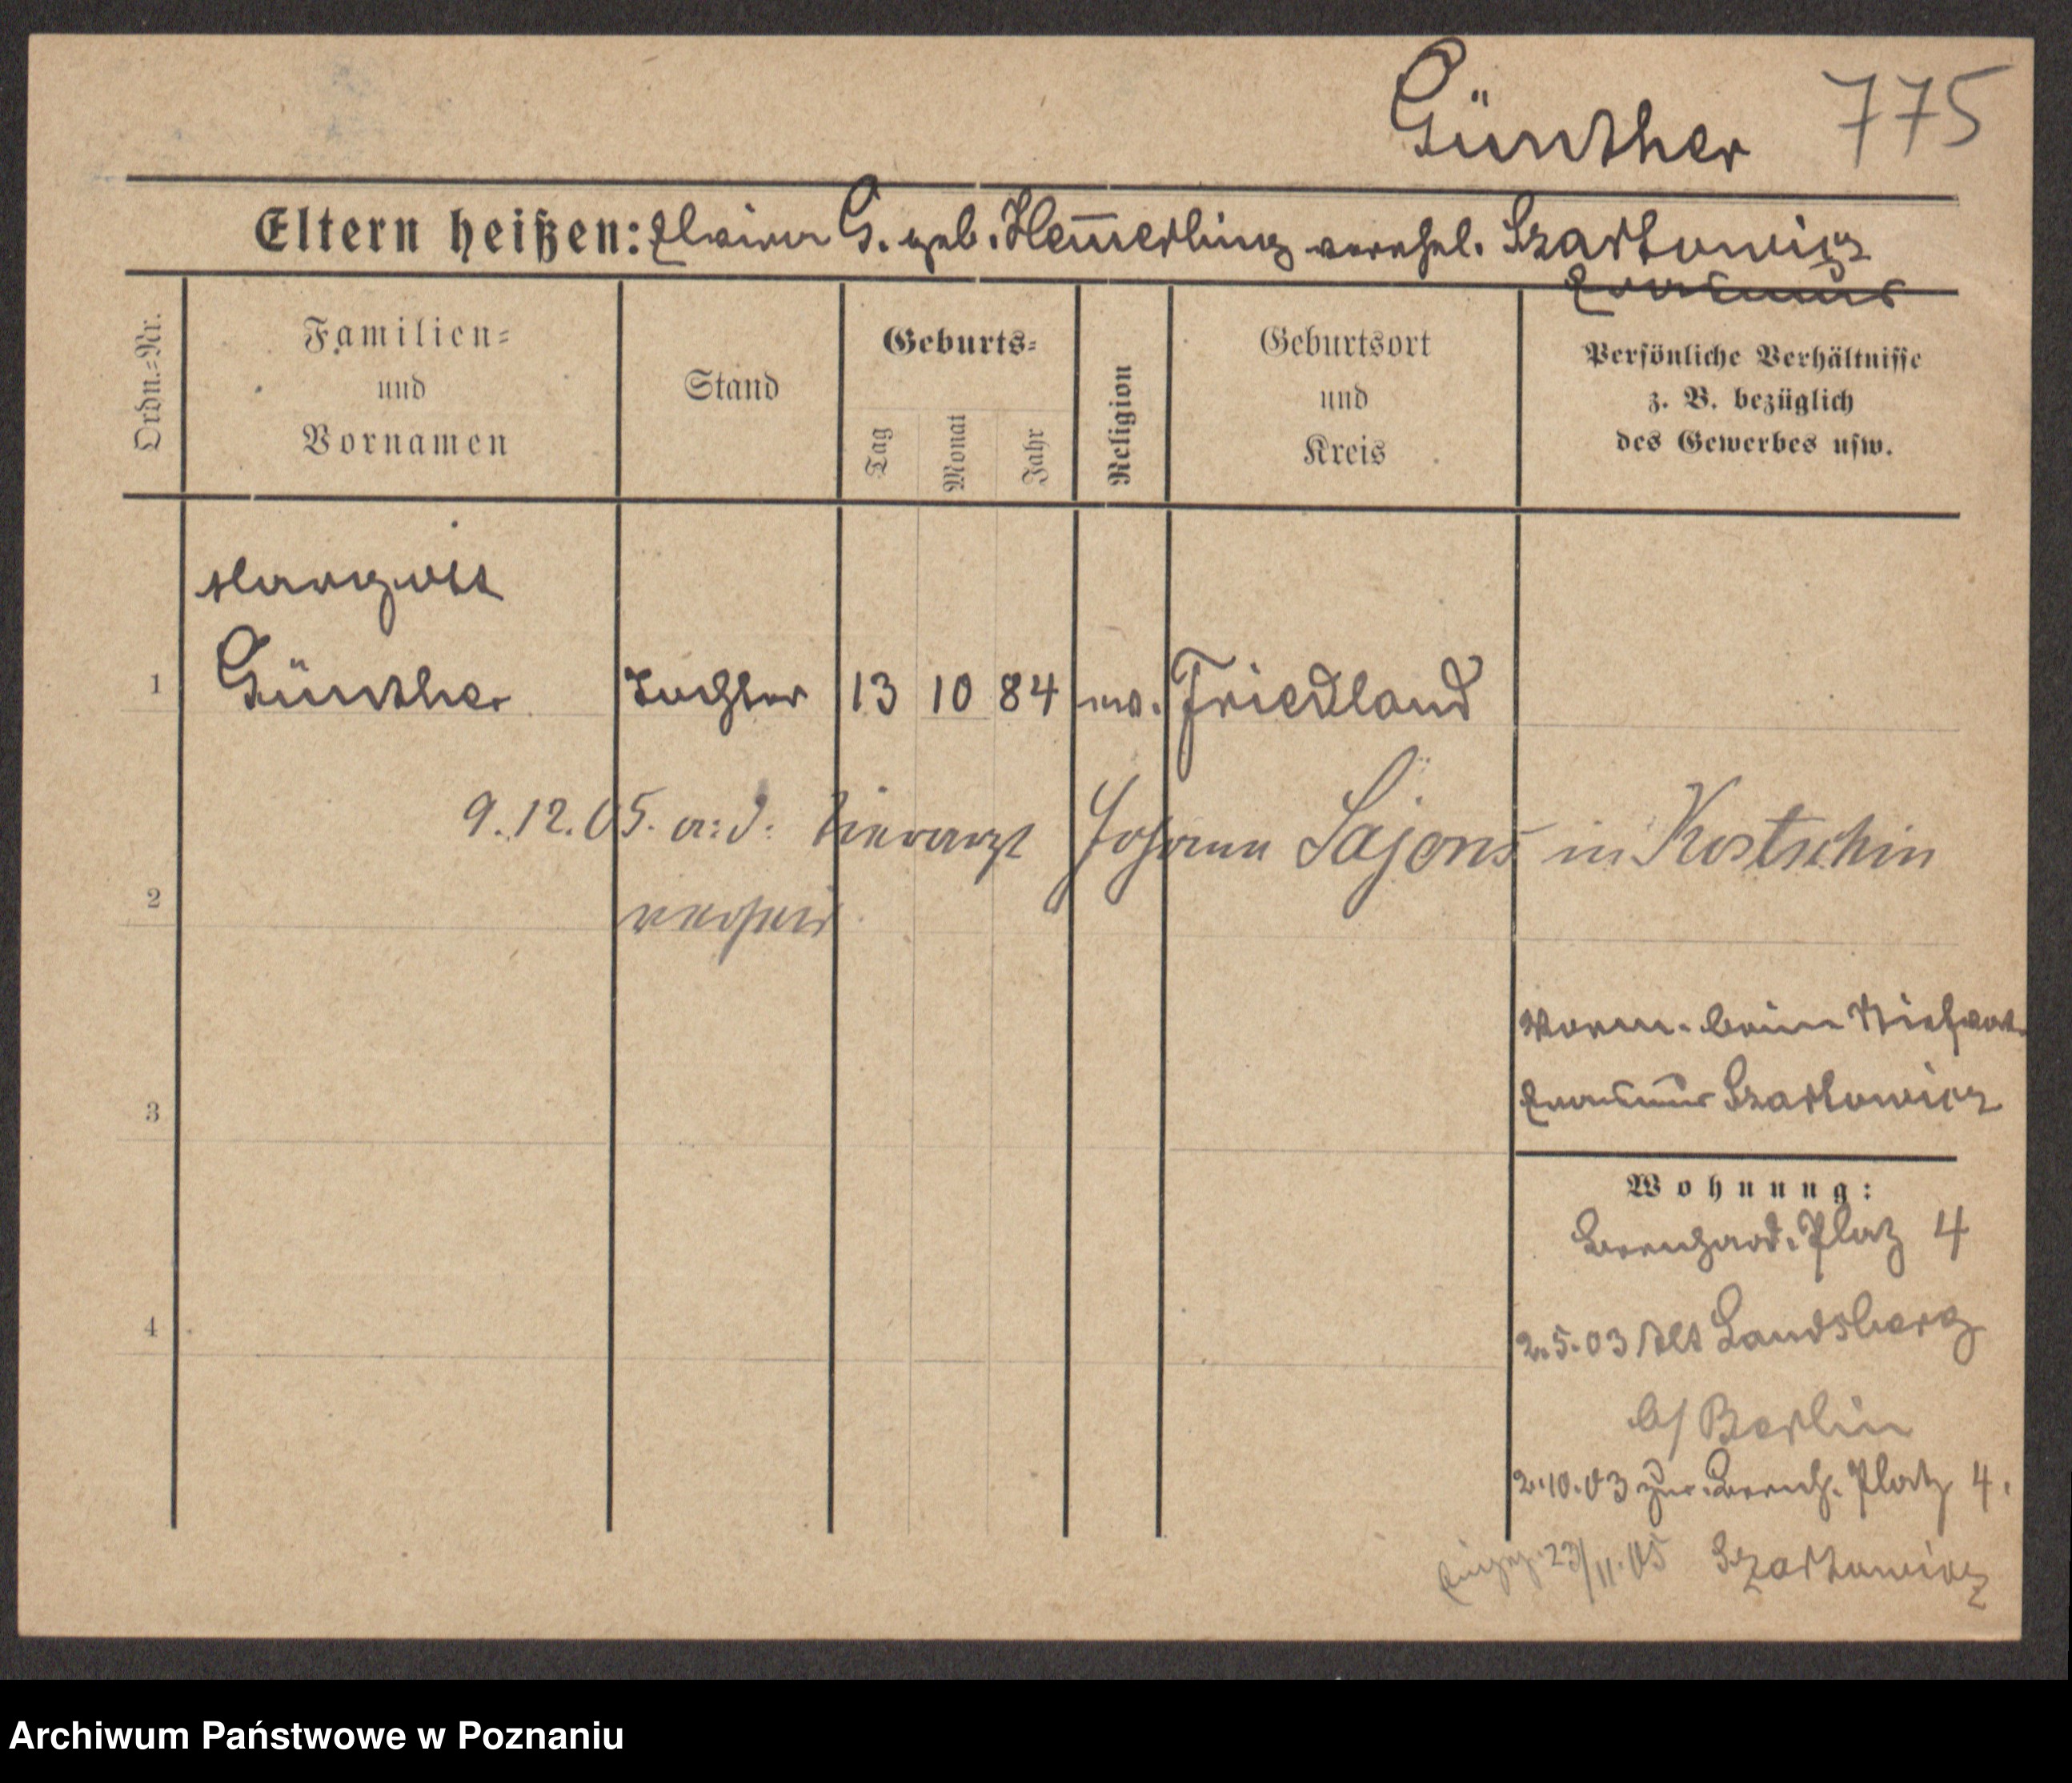 Günther 775
Eltern heißen: G. geb. Hem̅erling verehel. Szartowicz
Ordn.-Nr.
Familien-
und
Vornamen
Stand
Geburts-
Tag
Monat
Jahr
Religion
Geburtsort
und
Kreis
Persönliche Verhältnisse
z. B. bezüglich
des Gewerbes usw.
Margarete
1 Günther Tochter 13 10 84 ev. Friedland
9.12.05. a. d. Tierarzt Johann Sajons in Kostschin
2 verheir
Vorm. beim
3 Szartowicz
Wohnung:
Bernhard. Platz 4
4 2.5.03 Alt Landsberg
b/ Berlin
2.10.03 zur. Bernh. Platz 4.
23/11.05 Szartowicz
Archiwum Państwowe w Poznaniu